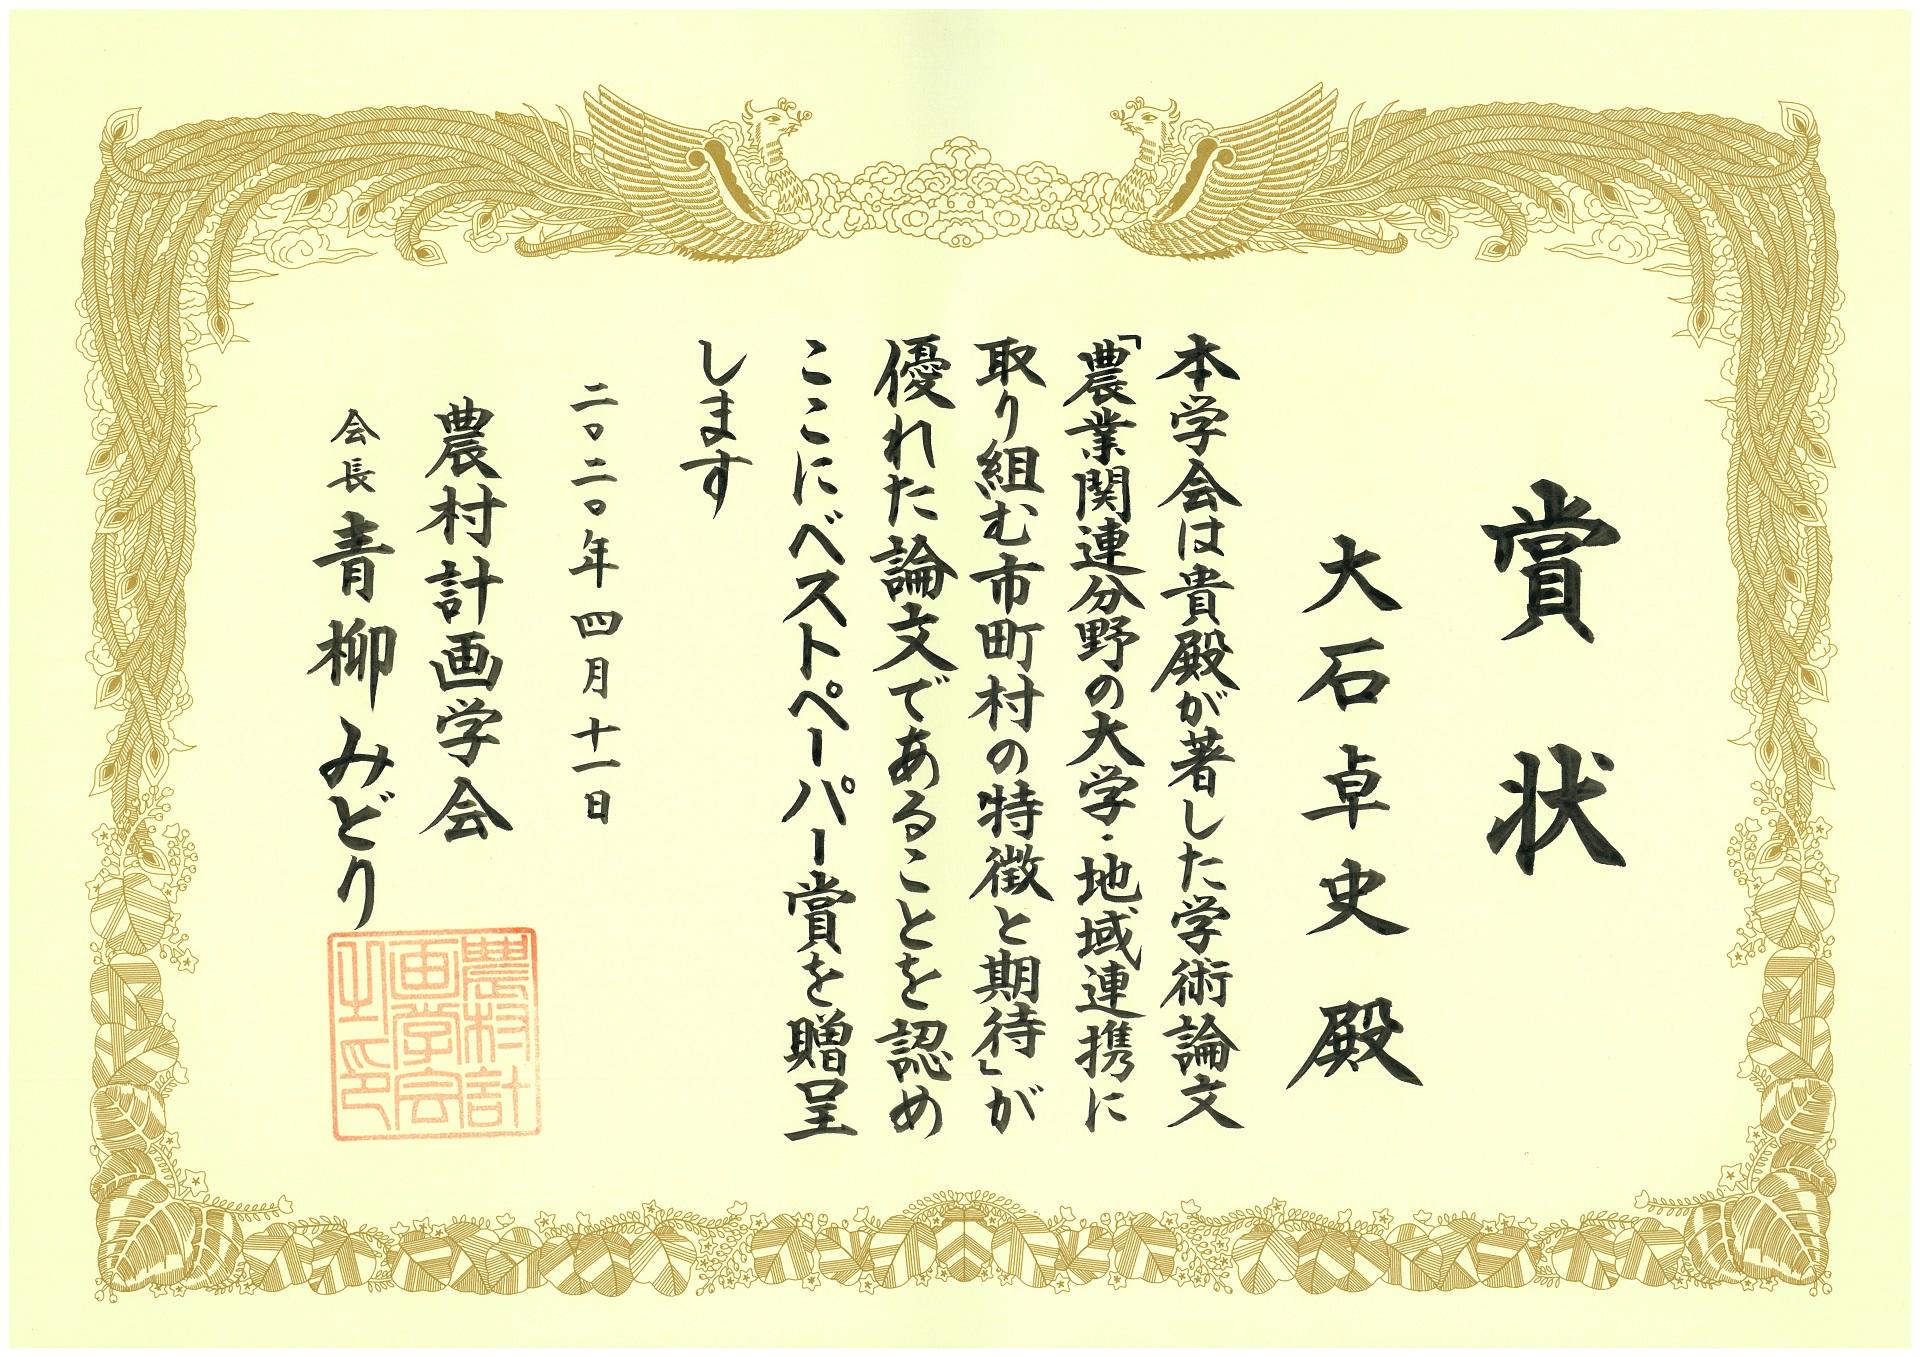 賞状
大石卓史殿
本学会は貴殿が著した学術論文
「農業関連分野の大学・地域連携に
取り組む市町村の特徴と期待」が
優れた論文であることを認め
ここにベストペーパー賞を贈呈
します
二〇二〇年四月十一日
農村計画学会
会長青柳みどり
農村計
画学会
之印